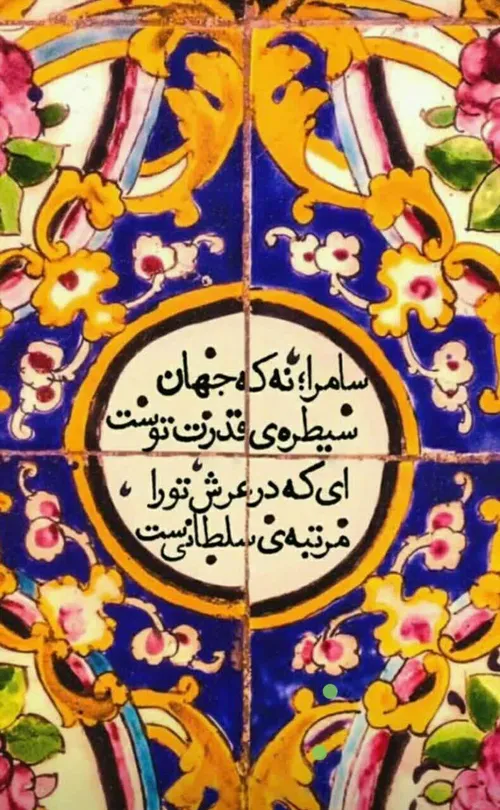 سامرا؛ نه که جهان
سیطره‌ی قدرت توست
ای که در عرش تو را
مرتبه‌ی سلطانی‌ست